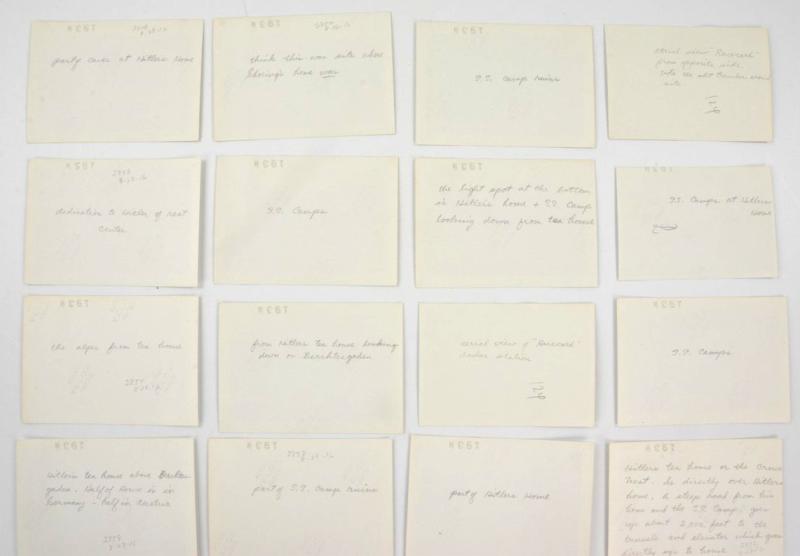 party cave at Hitlers Home
think this was site where
Ghoring's home was
S.S. Camp Ruins
aerial view "Raccard"
from opposite side
site
dedication to
center
S.S. Camps
the light spot at the bottom
is Hitlers home & S.S. Camp
looking down from tea house
S.S. Camps at Hitlers
Home
the alps from tea house
from Hitlers tea house looking
down on Berchtesgaden
aerial view of "Raccard"
radar station
S.S. Camps
within tea house above Berchtes
gaden. Half of House is in
Germany - half in Austria
part of S.S. Camp ruins
part of Hitlers Home
Hitlers tea house or the Crows
directly over Hitlers
home. A steep road from his
home and the S.S. Camp, goes
up about 2,000 feet to the
tunnels and elevator which goes
directly up to house